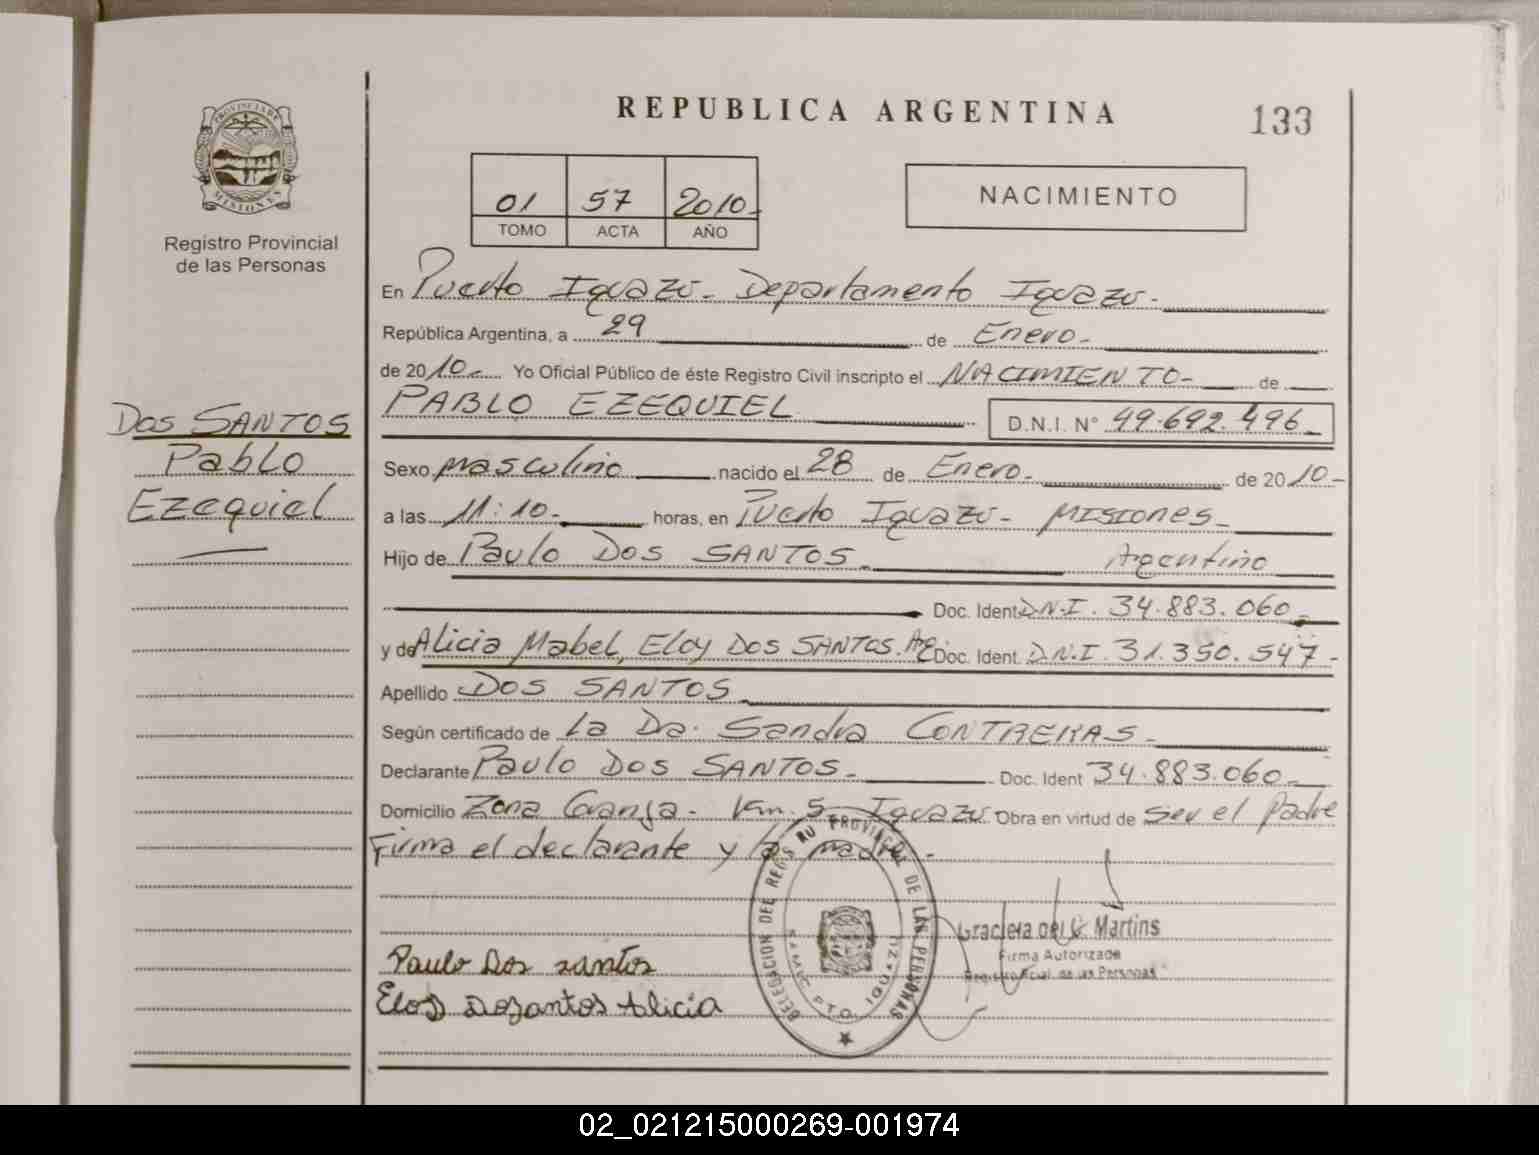 REPUBLICA ARGENTINA
133
PROVINCIA DE MISIONES
Registro Provincial
de las Personas
01 57 2010-
TOMO ACTA AÑO
NACIMIENTO
En Puerto Iguazú- Departamento Iguazú-
República Argentina, a 29 de Enero-
de 2010- Yo Oficial Público de éste Registro Civil inscripto el NACIMIENTO- de
PABLO EZEQUIEL D.N.I. N° 49.692.496-
DOS SANTOS
Pablo
Ezequiel
Sexo masculino nacido el 28 de Enero- de 2010-
a las 11:10- horas, en Puerto Iguazú- MISIONES-
Hijo de Paulo DOS SANTOS- Argentino
Doc. Ident. D.N.I. 34.883.060-
y de Alicia Mabel, Eloy DOS SANTOS. Doc. Ident. D.N.I. 31.350.547-
Apellido DOS SANTOS-
Según certificado de La Dra. Sandra CONTRERAS-
Declarante Paulo DOS SANTOS- Doc. Ident 34.883.060-
Domicilio Zona Granja- Km. 5- Iguazú- Obra en virtud de ser el Padre
Firma el declarante y la madre-
Paulo Dos santos
Eloy Dosantos Alicia
DELEGACION DEL REGISTRO PROVINCIAL DE LAS PERSONAS
PTO. IGUAZU
Graciela del C. Martins
Firma Autorizada
Registro Pcial. de las Personas
02_021215000269-001974